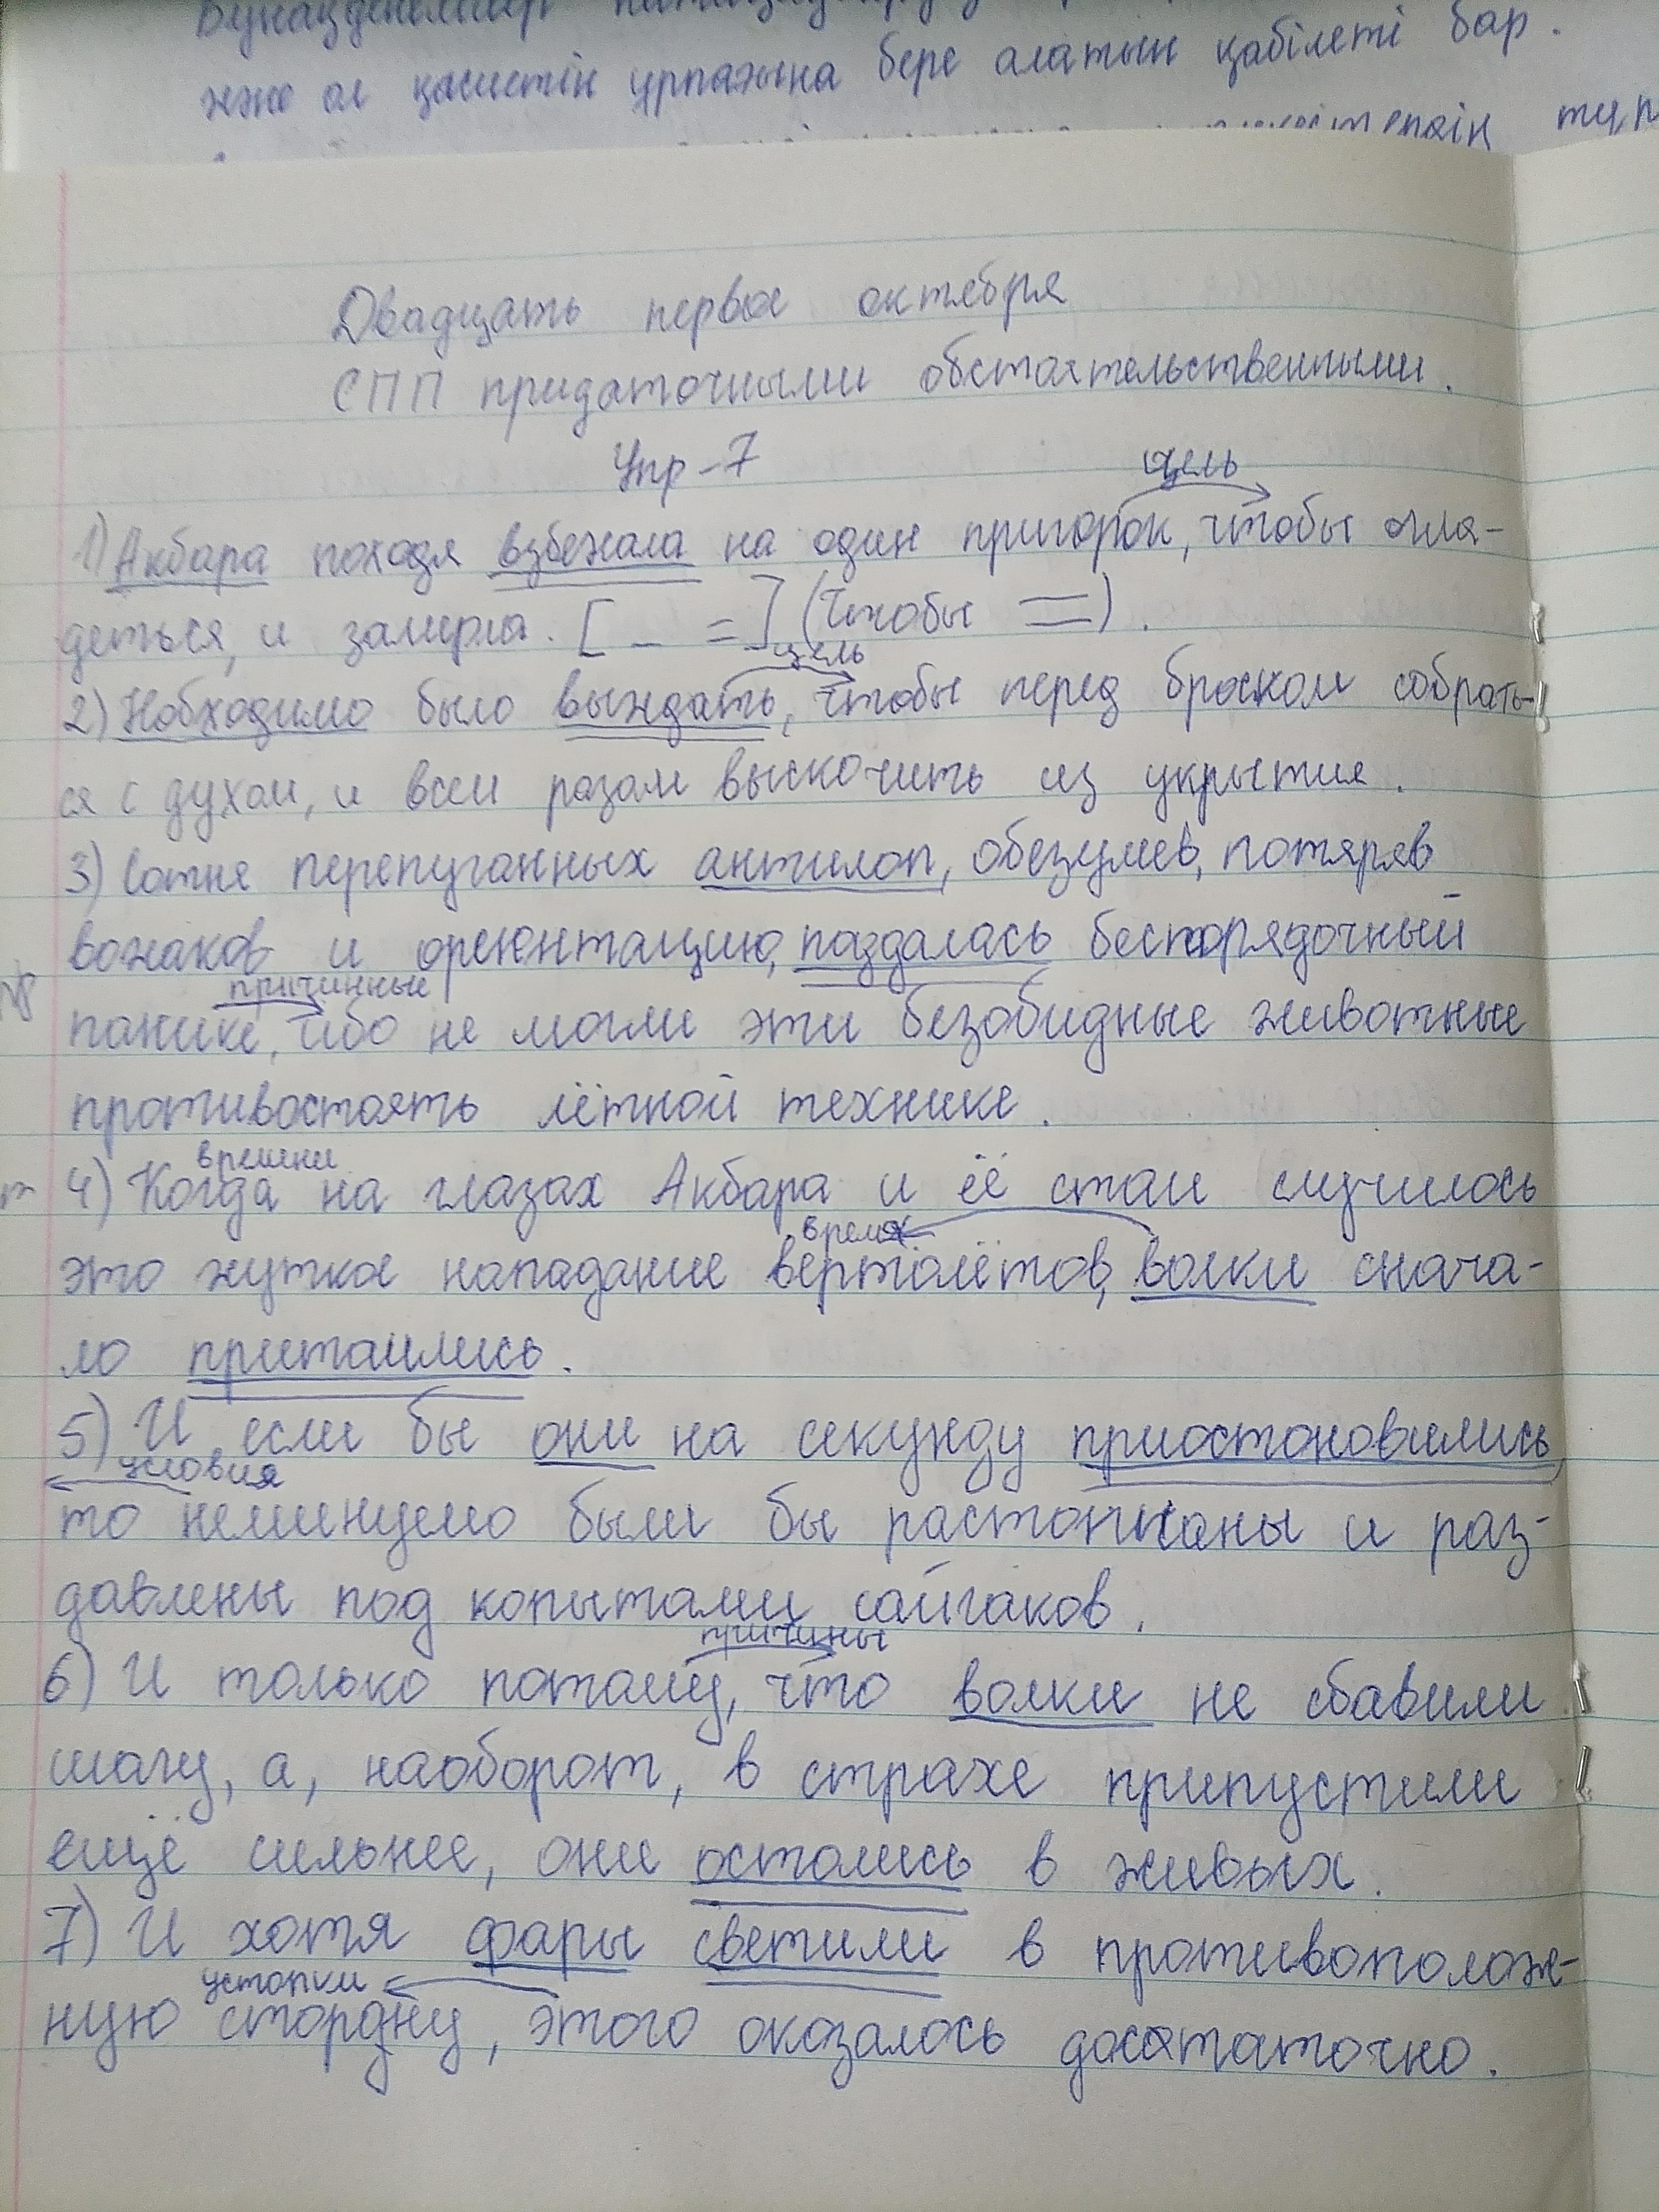 бере алатын қабілеті бар.
ол қасиетін ұрпағына
Двадцать первое октября
СПП придаточными обстоятельственными.
Упр-7
цель
1) Акбара походя взбежала на один пригорок, чтобы огля-
деться, и замерла. [_ =] (чтобы =).
цель
2) Небходимо было выждать, чтобы перед броском собрать-
ся с духом, и всем разом выскочить из укрытия.
3) Сотня перепуганных антилоп, обезумев, потеряв
вожаков и ориентацию, поздалась беспорядочный
причинные
панике, ибо не могли эти безобидные животные
противостоять лётной технике.
времени
4) Когда на глазах Акбара и её стаи случилось
время
это жуткое нападание вертолётов, волки снача-
ло притаились.
5) И если бы они на секунду приостоновились,
условия
то неминуемо были бы растоптаны и раз-
давлены под копытами сайгаков.
причины
6) И только потому, что волки не сбавили
шагу, а, наоборот, в страхе припустили
ещё сильнее, они остались в живых.
7) И хотя фары светили в противополож-
уступки
ную сторону, этого оказалось достаточно.